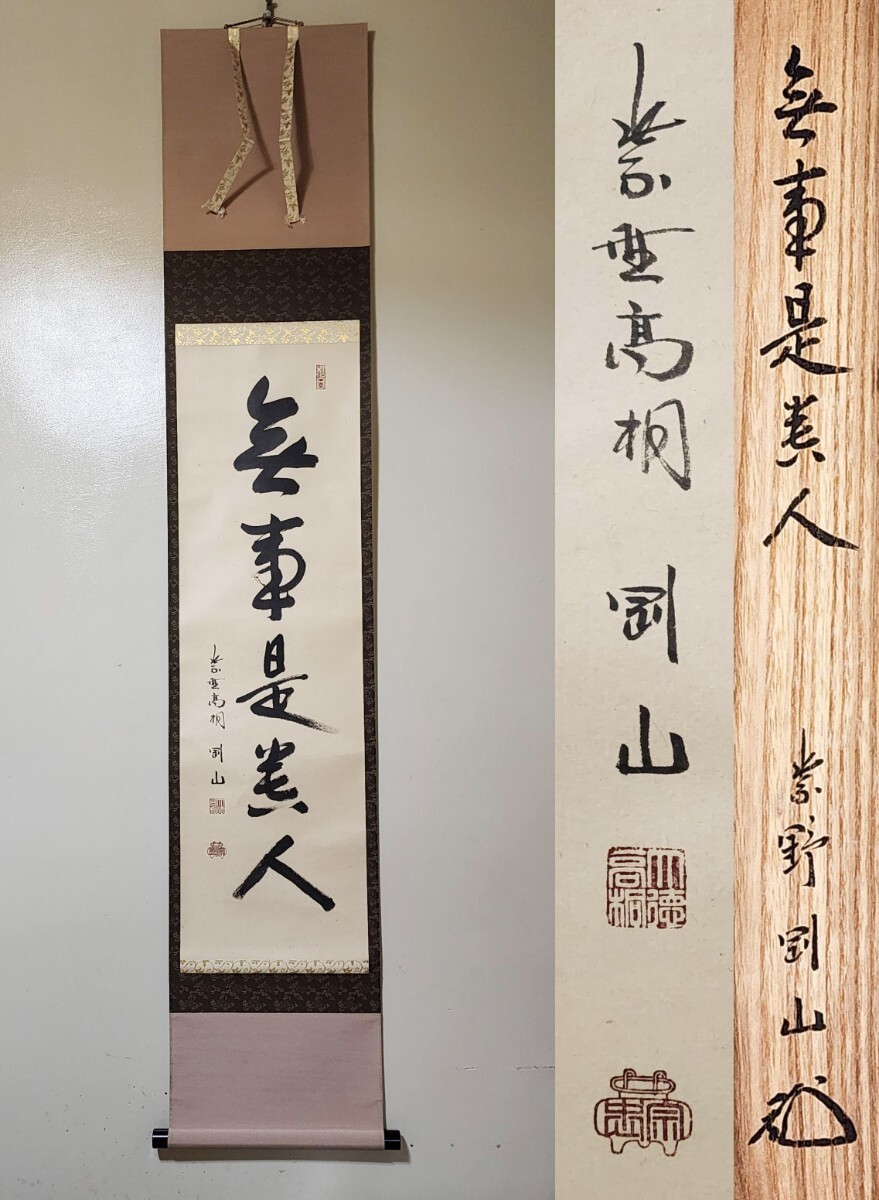 無事是貴人
紫野高桐 剛山
紫野高桐 剛山
大徳
高桐
宗
無事是貴人
紫野剛山